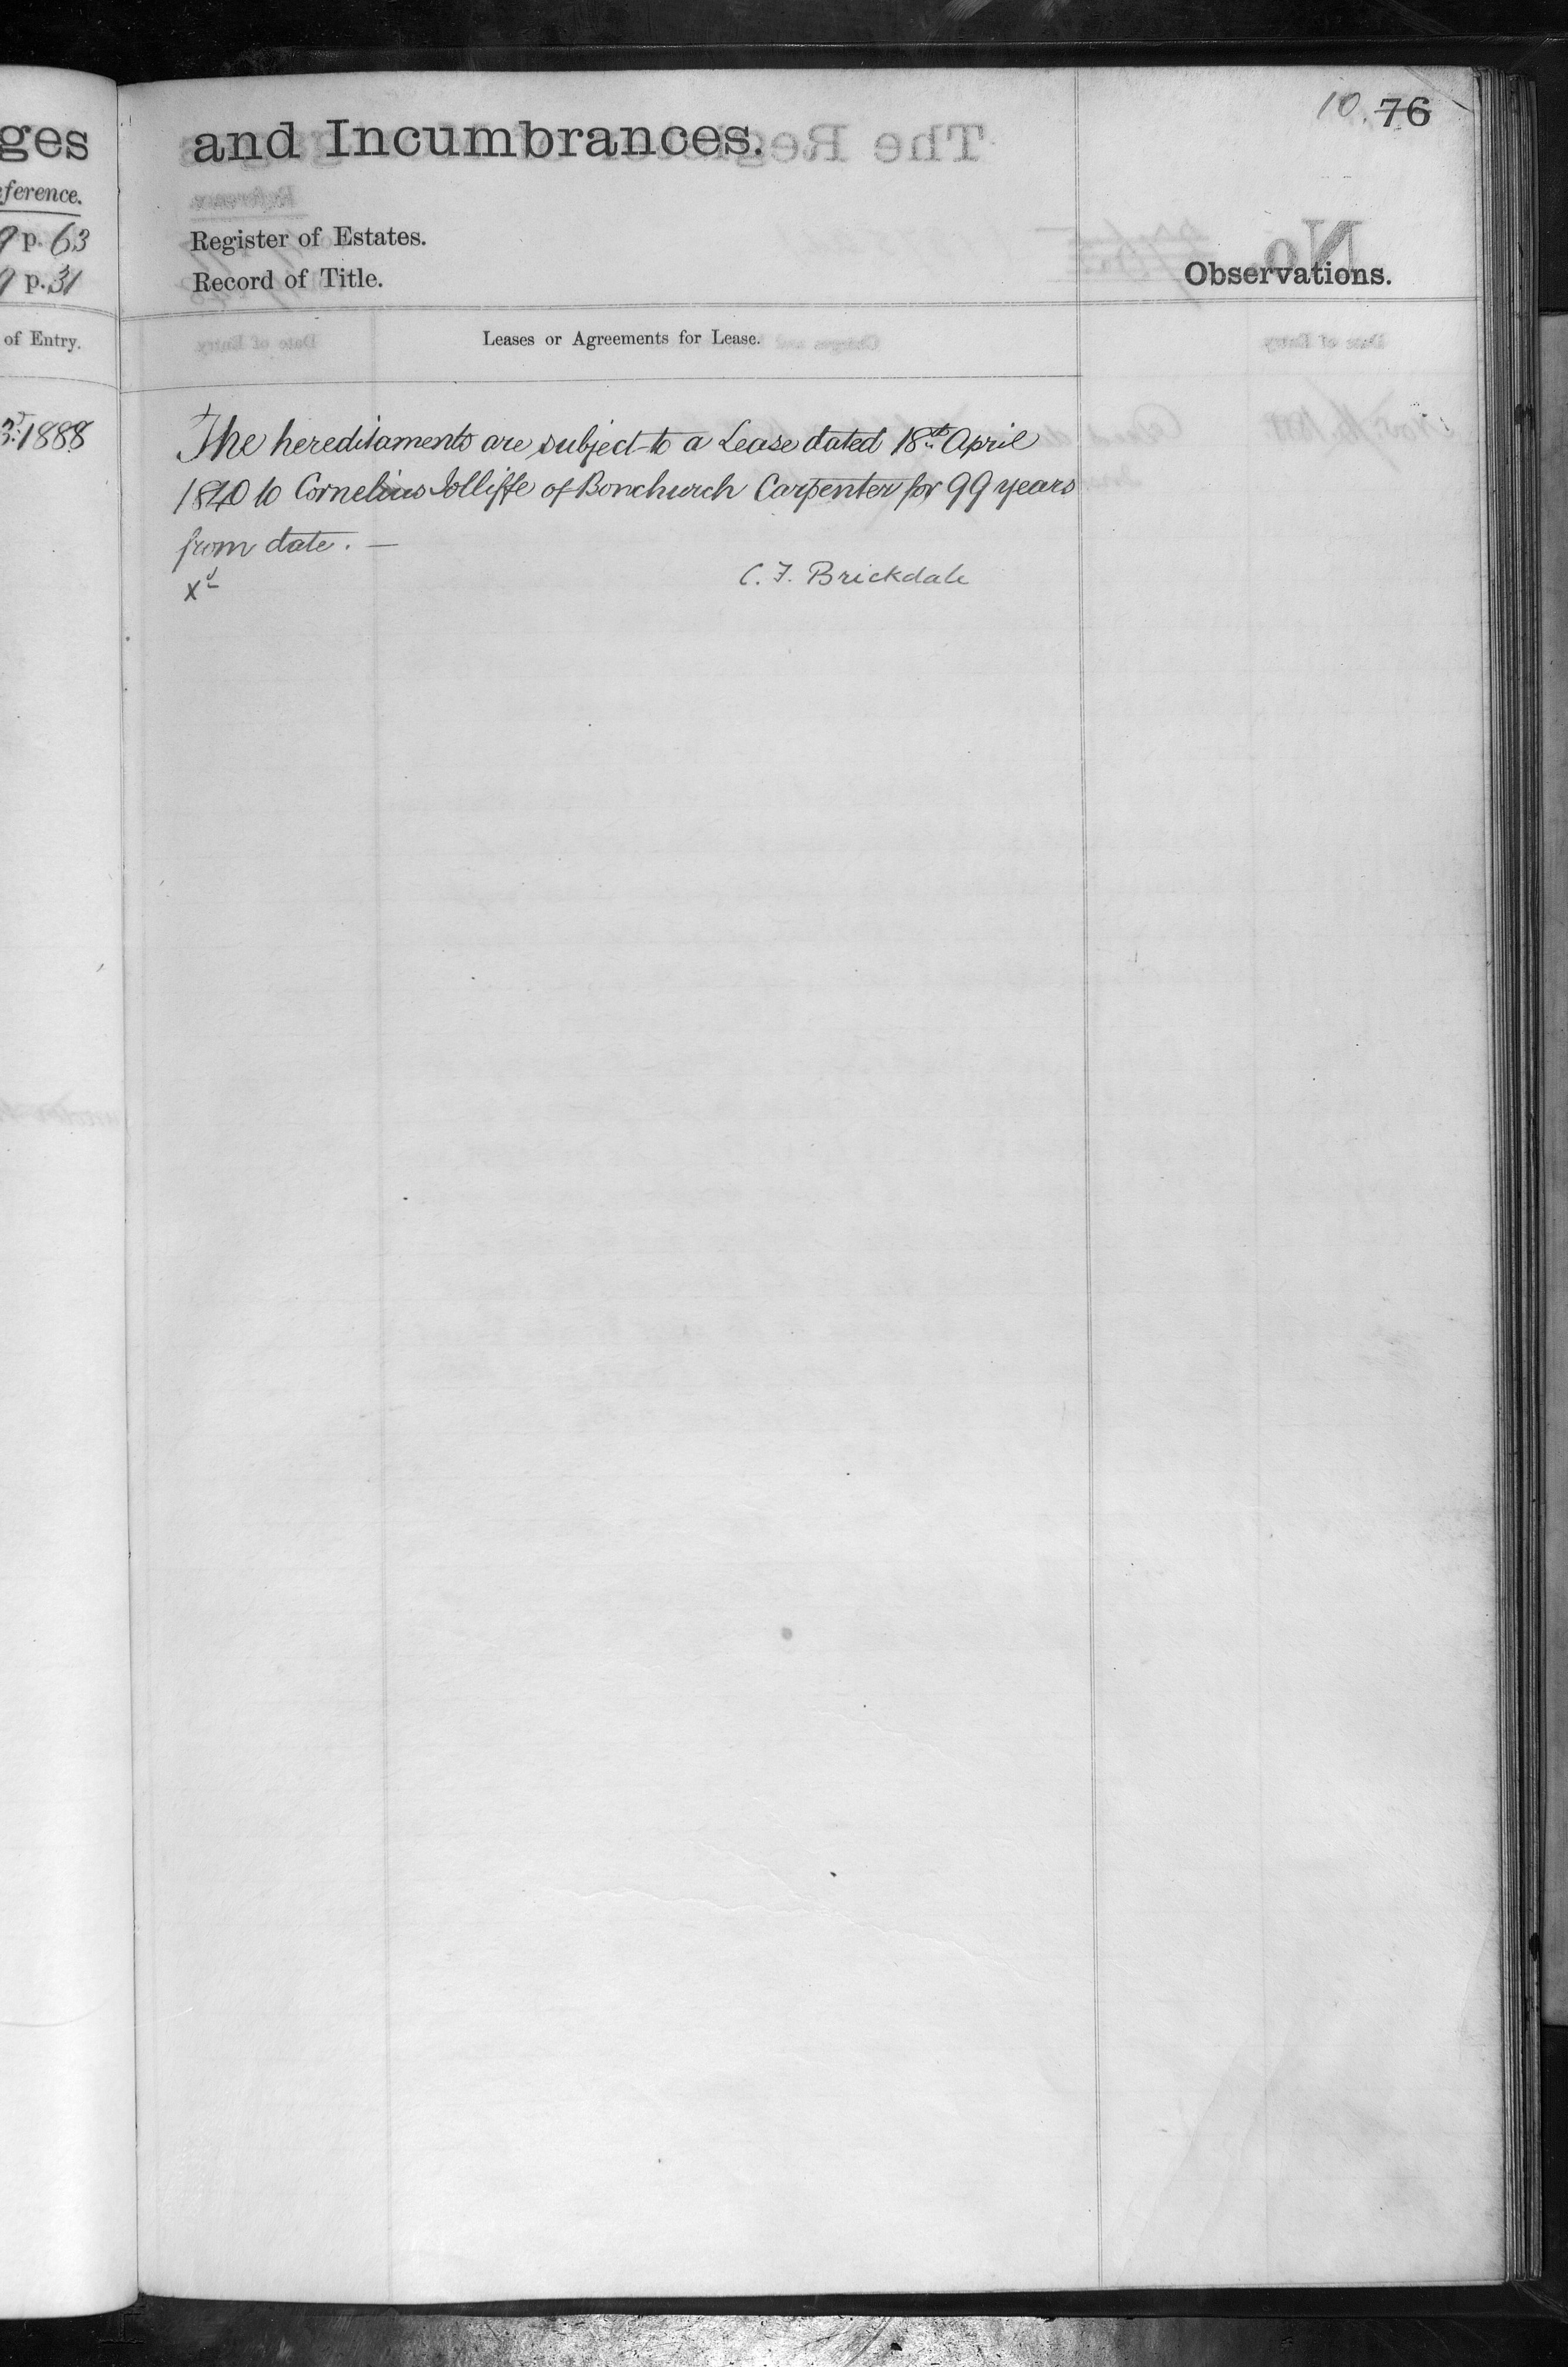 ges
eference.
9 p. 63
9 p. 31
of Entry.
3.d 1888
10. 76
and Incumbrances.
Register of Estates.
Record of Title.
Observations.
Leases or Agreements for Lease.
The hereditaments are subject to a Lease dated 18.th April
1840 to Cornelius Jolliffe of Bonchurch Carpenter for 99 years
from date. —
Xd
C. F. Brickdale